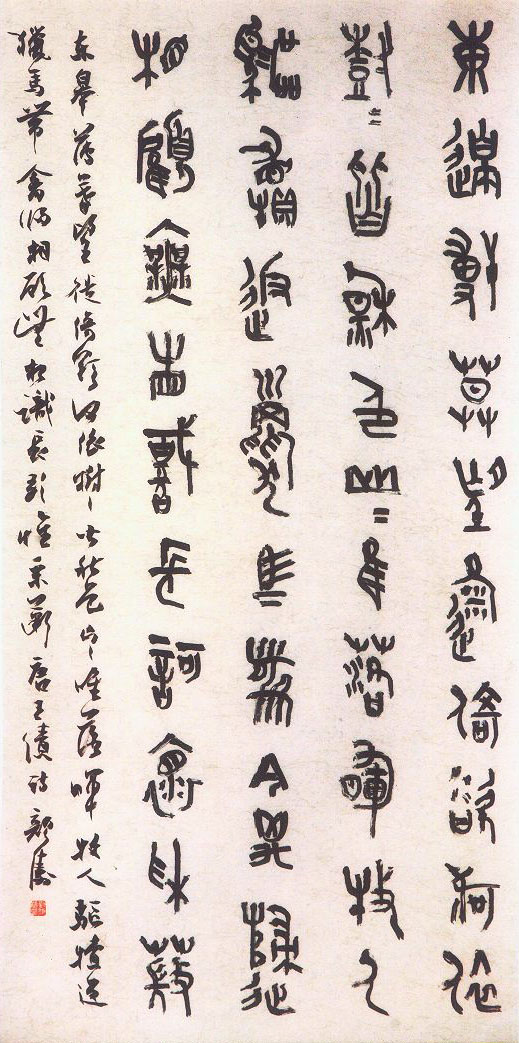 東皋薄暮望徙倚欲何依
樹〻皆秋色山〻隹落暉牧人
驅犢返獵馬帶禽歸
相顧無相識長歌懷采薇
東皋薄暮望徙倚欲何依樹〻皆秋色山〻唯落暉牧人驅犢返
獵馬帶禽歸相顧無相識長歌懷采薇唐王績詩顏濤